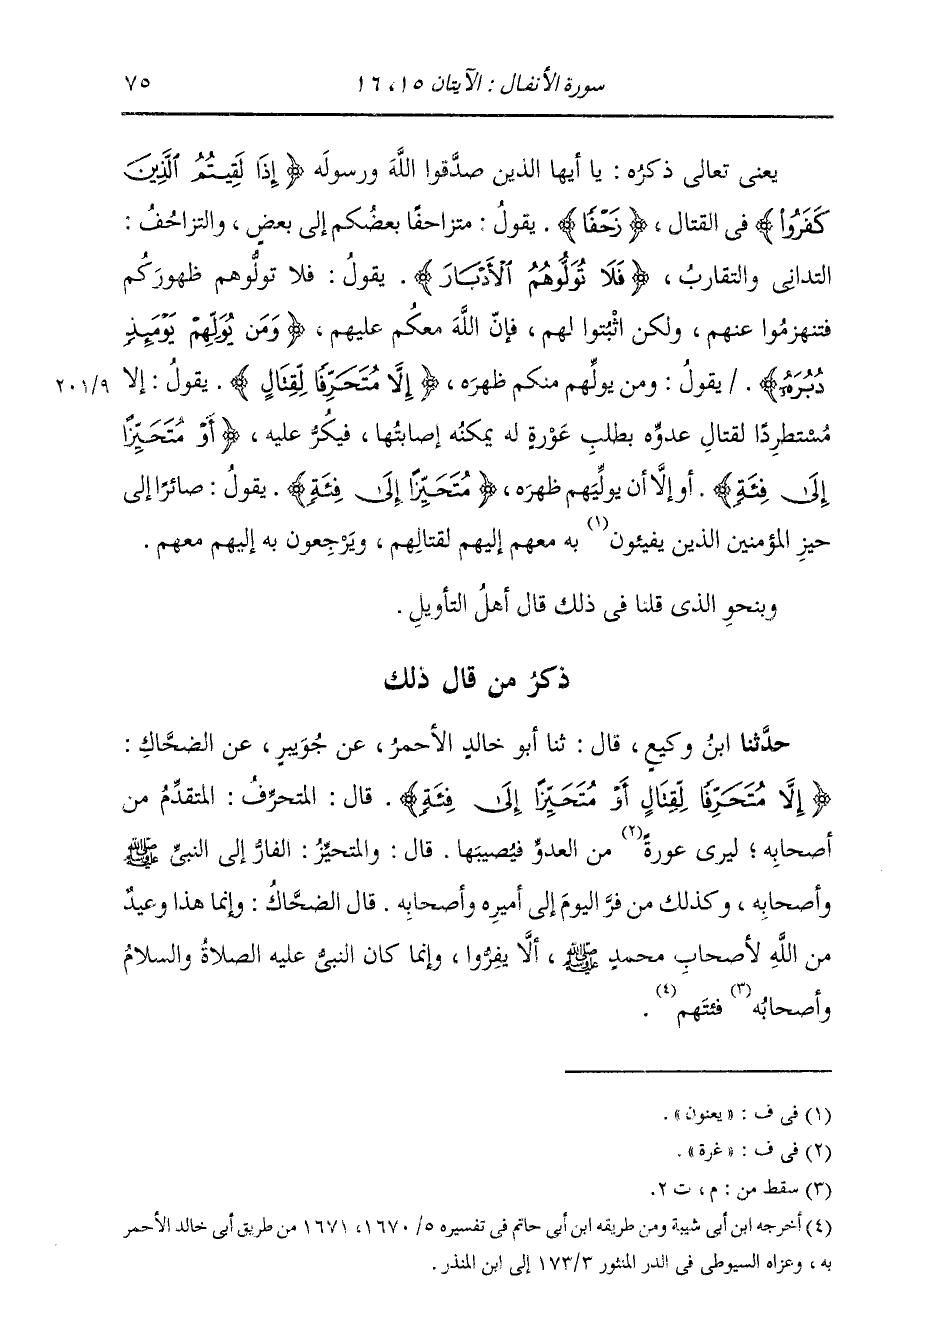 سورة الأنفال : الآيتان ١٥ ، ١٦ ٧٥
يعنى تعالى ذكرُه : يا أيها الذين صدَّقوا اللَّهَ ورسولَه ﴿ إِذَا لَقِيتُمُ ٱلَّذِينَ
كَفَرُواْ ﴾ فى القتال ، ﴿ زَحْفًا ﴾ . يقولُ : متزاحفًا بعضُكم إلى بعضٍ ، والتزاحُفُ :
التدانى والتقاربُ ، ﴿ فَلَا تُوَلُّوهُمُ ٱلْأَدْبَارَ ﴾ . يقولُ : فلا تولُّوهم ظهورَكُم
فتنهزمُوا عنهم ، ولكن اثْبُتوا لهم ، فإنّ اللَّهَ معكُم عليهم ، ﴿ وَمَن يُوَلِّهِمْ يَوْمَئِذٍ
دُبُرَهُۥٓ ﴾ . / يقولُ : ومن يولِّهم منكم ظهرَه ، ﴿ إِلَّا مُتَحَرِّفًا لِّقِتَالٍ ﴾ . يقولُ : إلا ٢٠١/٩
مُسْتطرِدًا لقتالِ عدوِّه بطلبِ عَوْرةٍ له يمكنُه إصابتُها ، فيكرُّ عليه ، ﴿ أَوْ مُتَحَيِّزًا
إِلَىٰ فِئَةٍ ﴾ . أو إلَّا أن يولِّيَهم ظهرَه ، ﴿ مُتَحَيِّزًا إِلَىٰ فِئَةٍ ﴾ . يقولُ : صائرًا إلى
حيزِ المؤمنين الذين يفيئون(١) به معهم إليهم لقتالِهم ، ويَرْجِعون به إليهم معهم .
وبنحوِ الذى قلنا فى ذلك قال أهلُ التأويلِ .
ذكرُ من قال ذلك
حدَّثنا ابنُ وكيعٍ ، قال : ثنا أبو خالدٍ الأحمرُ ، عن جُوَيبرٍ ، عن الضحَّاكِ :
﴿ إِلَّا مُتَحَرِّفًا لِّقِتَالٍ أَوْ مُتَحَيِّزًا إِلَىٰ فِئَةٍ ﴾ . قال : المتحرِّفُ : المتقدِّمُ من
أصحابِه ؛ ليرى عورةً(٢) من العدوِّ فيُصيبَها . قال : والمتحيِّزُ : الفارُّ إلى النبىِّ ﷺ
وأصحابِه ، وكذلك من فرَّ اليومَ إلى أميرِه وأصحابِه . قال الضحَّاكُ : وإنما هذا وعيدٌ
من اللَّهِ لأصحابِ محمدٍ ﷺ ، ألَّا يفِرُّوا ، وإنما كان النبىُّ عليه الصلاةُ والسلامُ
وأصحابُه(٣) فئتَهم(٤) .
(١) فى ف : « يعنون » .
(٢) فى ف : « غرة » .
(٣) سقط من : م ، ت ٢ .
(٤) أخرجه ابن أبى شيبة ومن طريقه ابن أبى حاتم فى تفسيره ٥/ ١٦٧٠، ١٦٧١ من طريق أبى خالد الأحمر
به ، وعزاه السيوطى فى الدر المنثور ١٧٣/٣ إلى ابن المنذر .